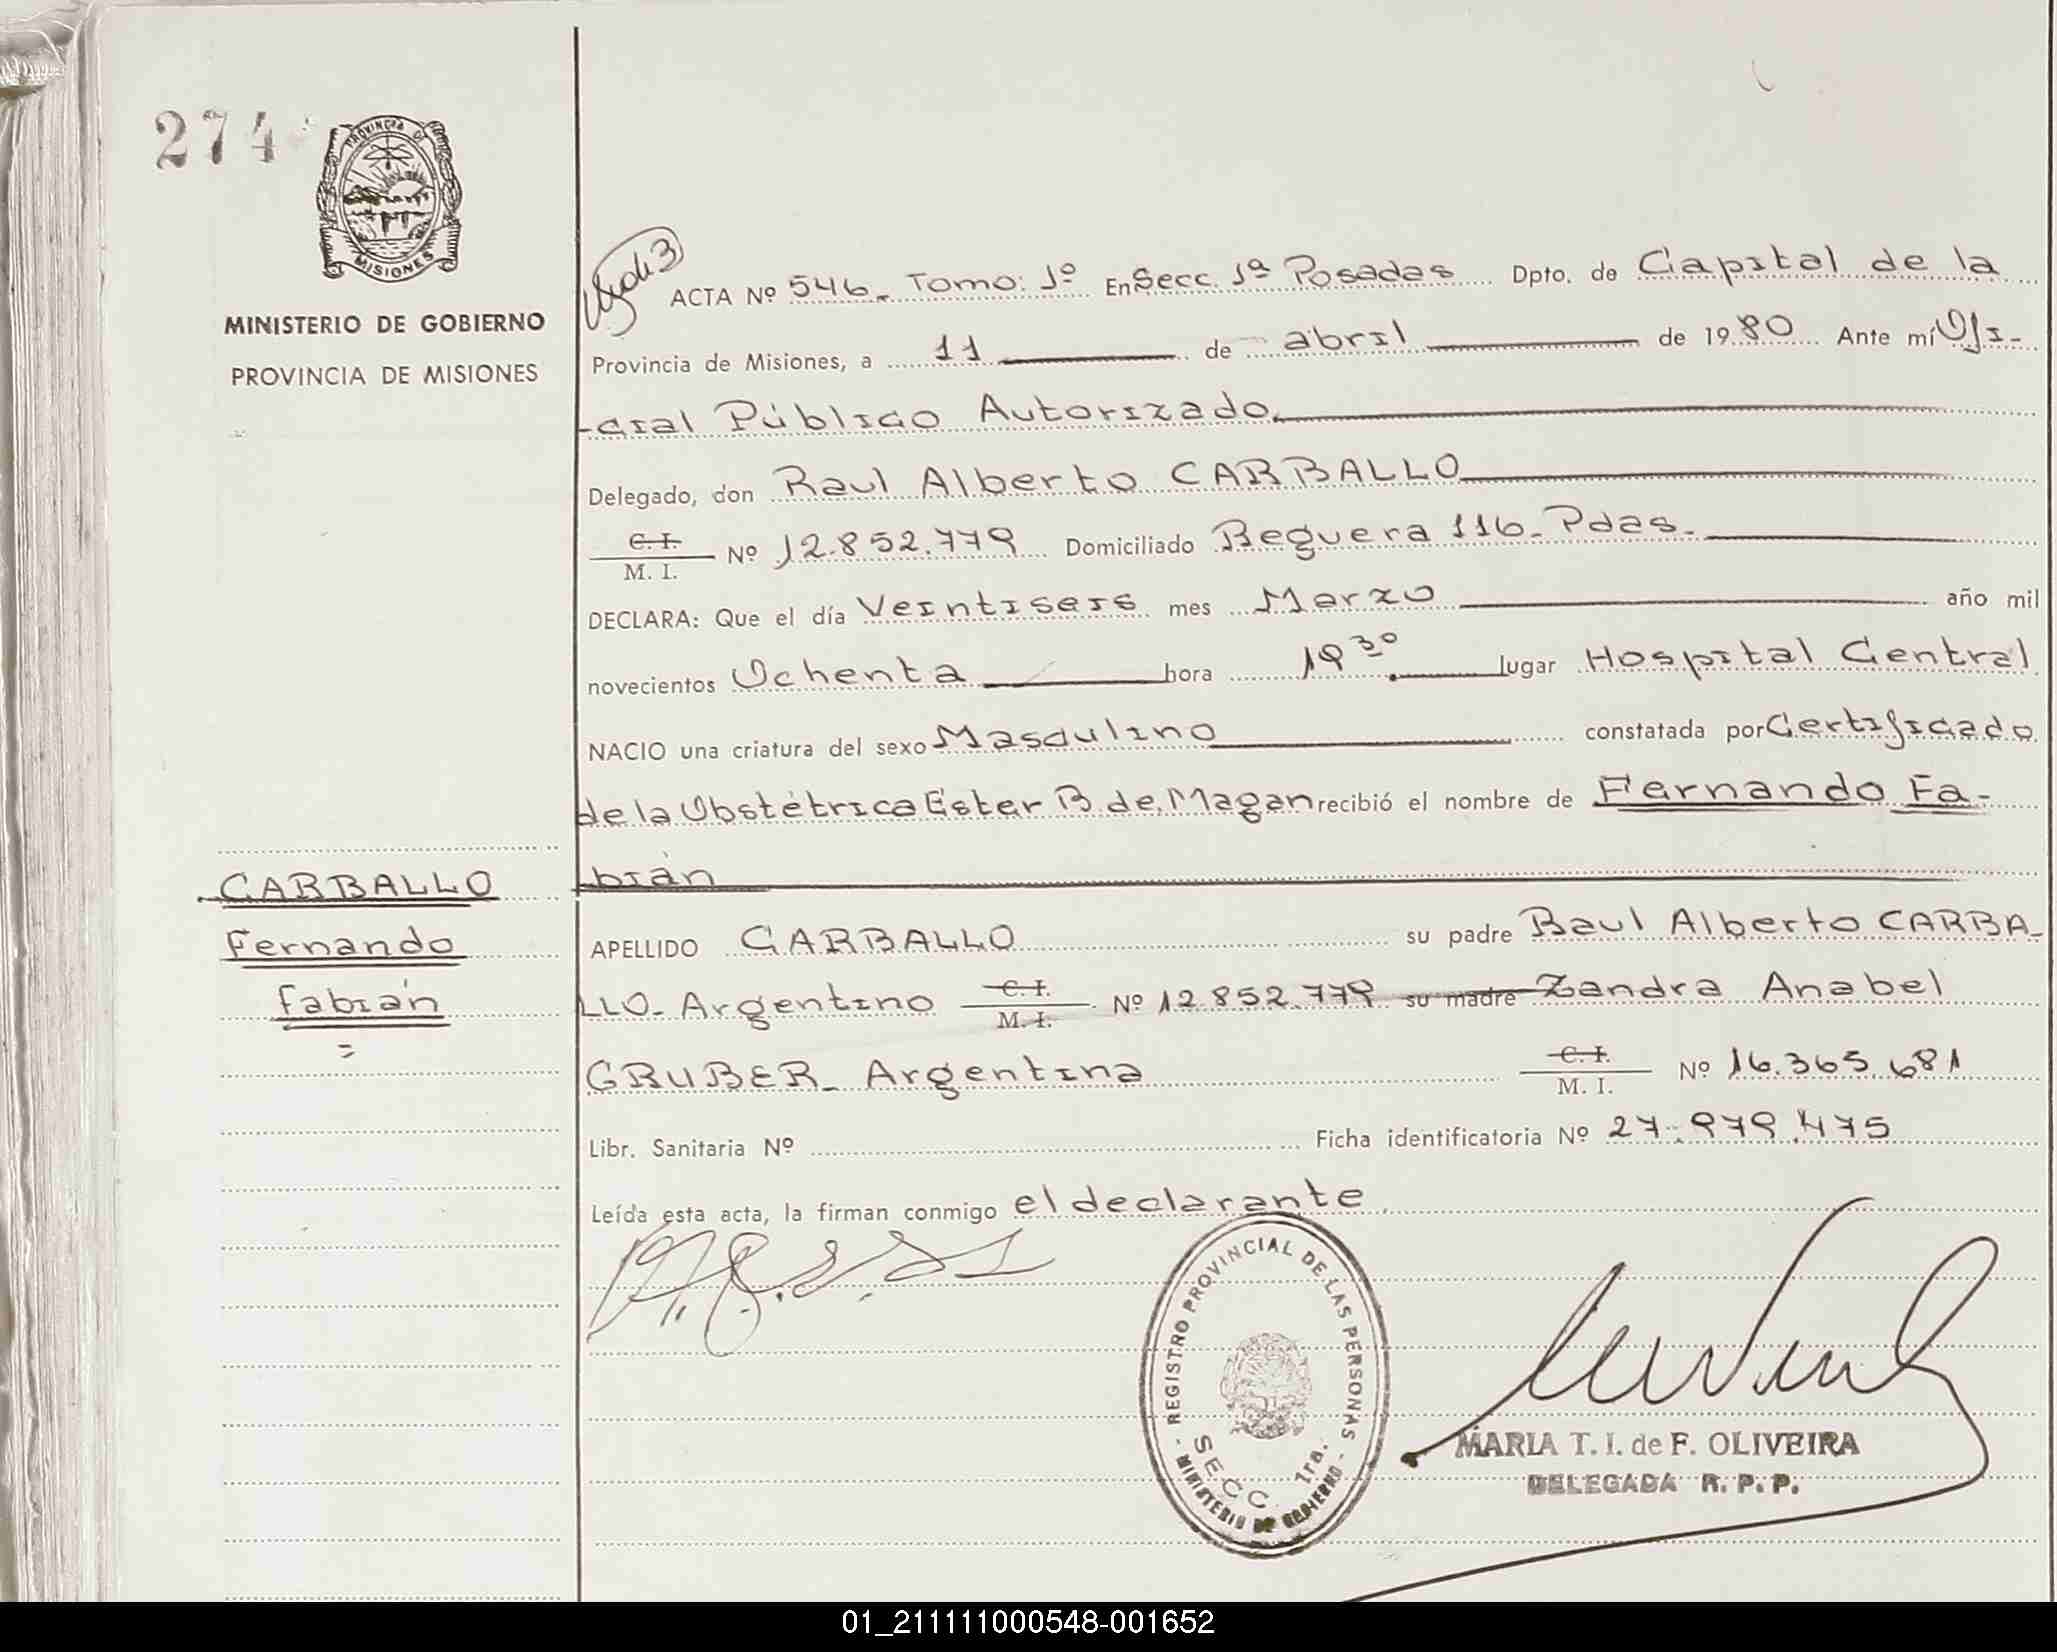 274
PROVINCIA DE
MISIONES
MINISTERIO DE GOBIERNO
PROVINCIA DE MISIONES
CARBALLO
Fernando
Fabián
ACTA Nº 546. Tomo: 1º En Secc. 1ª Posadas Dpto. de Capital de la
Provincia de Misiones, a 11 de abril de 1980 Ante mí Ofi-
cial Público Autorizado.
Delegado, don Raul Alberto CARBALLO
C. I.
M. I. Nº 12.852.779 Domiciliado Beguera 116. Pdas.
DECLARA: Que el día Veintiseis mes Marzo año mil
novecientos Ochenta hora 19 30 lugar Hospital Central
NACIO una criatura del sexo Masculino constatada por Certificado
de la Obstétrica Ester B. de Magan recibió el nombre de Fernando Fa-
bián
APELLIDO CARBALLO su padre Raul Alberto CARBA-
LLO. Argentino C. I. M. I. Nº 12.852.779 su madre Zandra Anabel
GRUBER. Argentina C. I. M. I. Nº 16.365.681
Libr. Sanitaria Nº Ficha identificatoria Nº 27.979.475
Leída esta acta, la firman conmigo el declarante
- REGISTRO PROVINCIAL DE LAS PERSONAS -
SECC. 1ra.
MINISTERIO DE GOBIERNO
MARIA T. I. de F. OLIVEIRA
DELEGADA R. P. P.
01_211111000548-001652